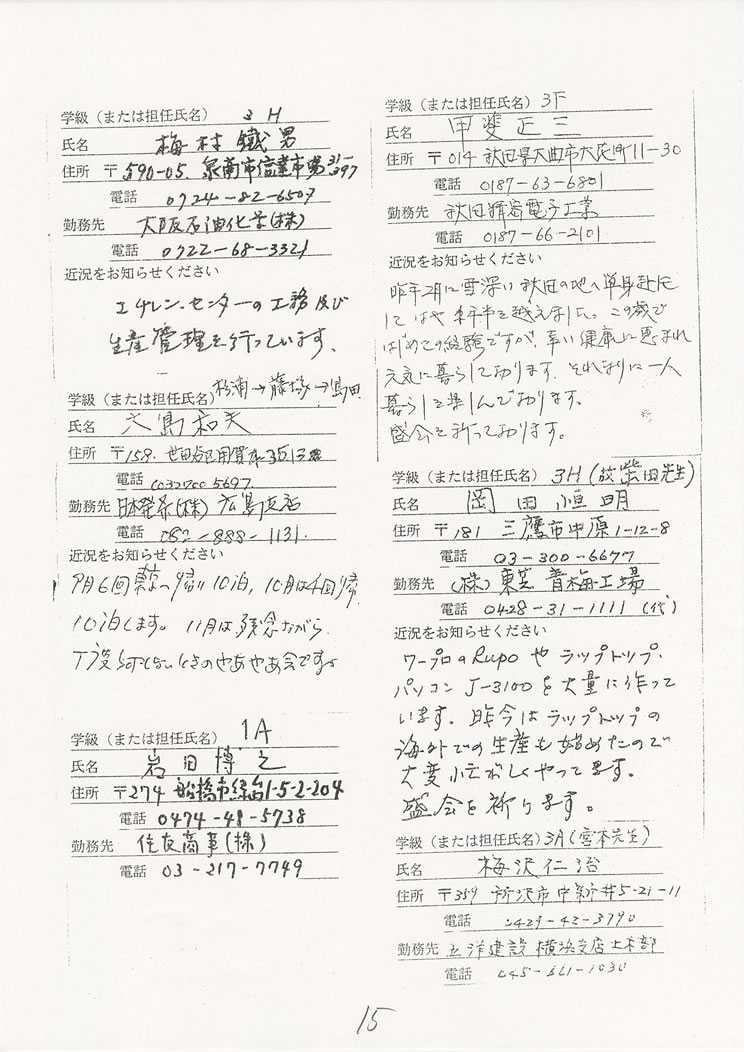 学級（または担任氏名） 3H
氏名 梅村鐵男
住所 〒590-05. 泉南市信達市場
電話 0724-82-6507
勤務先 大阪石油化学(株)
電話 0722-68-3321
近況をお知らせください
エチレン・センターの工務及び
生産管理を行っています、
学級（または担任氏名） 杉浦→藤塚→島田
氏名 大島和夫
住所 〒158. 世田谷区用賀
電話
勤務先 日本発条(株) 広島支店
電話 082-888-1131
近況をお知らせください
10泊, 10月は4回帰
10泊します。11月は残念ながら
学級（または担任氏名） 1A
氏名 岩田博之
住所 〒274 船橋市緑台1-5-2-204
電話 0474-48-5738
勤務先 住友商事(株)
電話 03-217-7749
学級（または担任氏名） 3F
氏名 甲斐正三
住所 〒014 秋田県大曲市大花町11-30
電話 0187-63-6801
勤務先 秋田精密電子工業
電話 0187-66-2101
近況をお知らせください
昨年2月に雪深い秋田の地へ単身赴任
してはや半年を越えました。この歳で
はじめての経験ですが、幸い健康に恵まれ
元気に暮らして居ります。それなりに一人
暮らしを楽しんで居ります。
盛会を祈って居ります。
学級（または担任氏名） 3H（故柴田先生）
氏名 岡田恒明
住所 〒181 三鷹市中原1-12-8
電話 03-300-6677
勤務先 (株)東芝 青梅工場
電話 0428-31-1111（代）
近況をお知らせください
ワープロのRupoやラップトップ・
パソコン J-3100を大量に作って
います。昨今はラップトップの
海外での生産も始めたので
大変忙がしくやってます。
盛会を祈ります。
学級（または担任氏名） 3A（宮本先生）
氏名 梅沢仁治
住所 〒359 所沢市中新井5-21-11
電話 0429-42-3790
勤務先 五洋建設 横浜支店土木部
電話
15